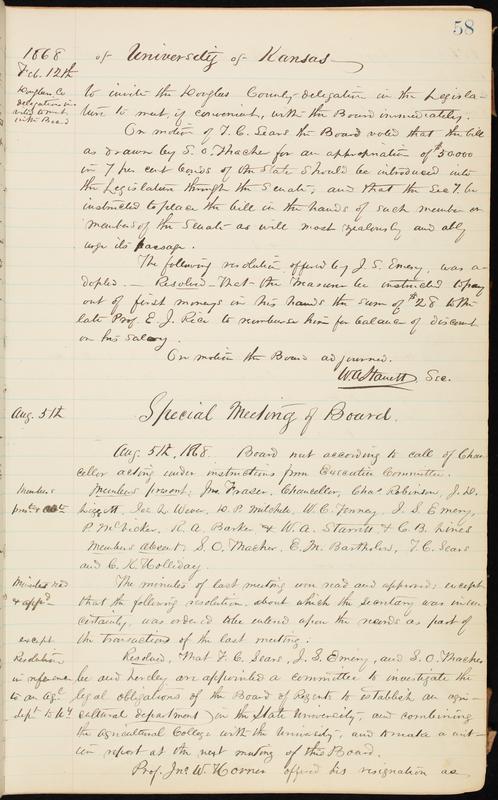 58
1868 of University of Kansas
Feb. 12th
Douglas Co
delegation in-
vited to meet
with the Board
to invite the Douglas County delegation in the Legisla-
ture to meet, if convenient, with the Board immediately.
On motion of T. C. Sears the Board voted that the bill
as drawn by S. O. Thacher for an appropriation of $50000
in 7 per cent bonds of the State should be introduced into
the Legislature through the Senate, and that the Sec'y. be
instructed to place the bill in the hands of such member or
members of the Senate as will most zealously and ably
urge its passage.
The following resolution, offered by J. S. Emery, was a-
dopted. — Resolved That the Treasurer be instructed to pay
out of first moneys in his hands the sum of $28 to the
late Prof. E. J. Rice to reimburse him for balance of discount
on his salary.
On motion the Board adjourned.
W. A. Starrett Sec.
Aug. 5th Special Meeting of Board.
Aug. 5th, 1868. Board met according to call of Chan-
cellor acting under instructions from Executive Committee.
Members
Members present; Jno. Fraser, Chancellor, Chas Robinson, J. D.
Liggett, D. P. Mitchell, W. C. Tenney, J. S. Emery,
R. A. Barker & W. A. Starrett & C. B. Lines
Members absent, S. O. Thacher, E. M. Bartholow, T. C. Sears
and C. K. Holliday.
Minutes read
& app'd
The minutes of last meeting were read and approved except
that the following resolution, about which the Secretary was in un-
certainty, was ordered to be entered upon the records as part of
except
the transactions of the last meeting:
Resolution
in reference
to an Ag'l
dep't to the U.
Resolved, That T. C. Sears, J. S. Emery, and S. O. Thacher
be and hereby are appointed a committee to investigate the
legal obligations of the Board of Regents to establish an agri-
cultural department in the State University, and combining
the Agricultural College with the University, and to make a writ-
ten report at the next meeting of this Board.
Prof. Jno. W. Horner offered his resignation as